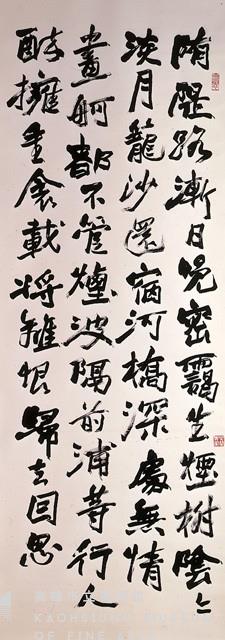 隋隄路漸日晚密靄生煙樹陰〻
淡月籠沙還宿河橋深處無情
畫舸都不管煙波隔前浦等行人
醉擁重衾載將離恨歸去因思
高雄市立美術館
KAOHSIUNG MUSEUM
OF FINE ARTS